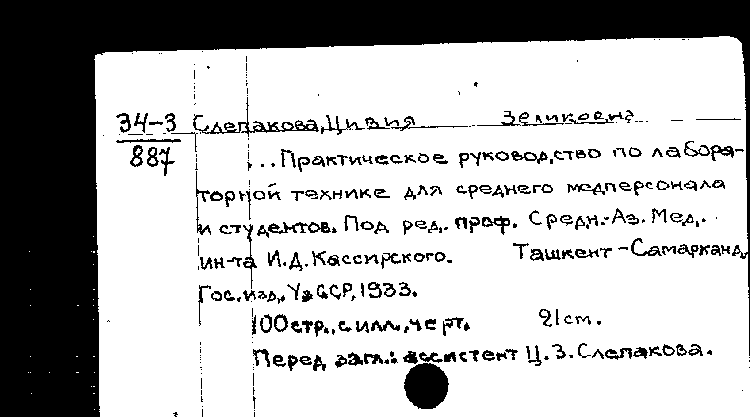 34-3 Слепакова, Цивия Зеликовна
887 ...Практическое руководство по лабора-
торной технике для среднего медперсонала
и студентов. Под ред. проф. Средн.-Аз. Мед.
ин-та И.Д. Кассирского. Ташкент-Самарканд,
Гос. изд. УзССР, 1933.
100 стр., с илл., черт. 21 см.
Перед загл.: ассистент Ц.З. Слепакова.